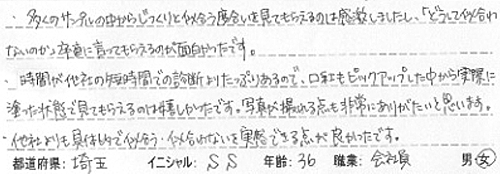 ・多くのサンプルの中からじっくりと似合う度合いを見てもらえるのは感激しましたし、「どうして似合わ
ないのか」率直に言ってもらえるのが面白かったです。
・時間が他社の短時間での診断よりたっぷりあるので、口紅もピックアップした中から実際に
塗った状態で見てもらえるのは嬉しかったです。写真が撮れる点も非常にありがたいと思います。
・他社よりも具体的で似合う・似合わないを実感できる点が良かったです。
都道府県：埼玉　イニシャル：S S　年齢：36　職業：会社員　男・女